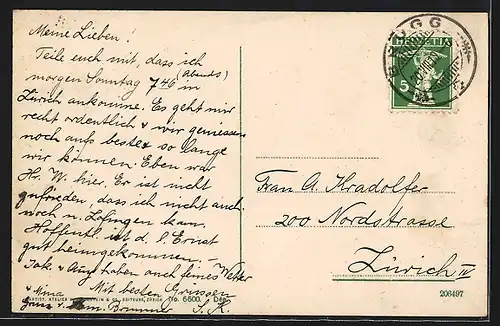 Meine Lieben!
Teile euch mit, dass ich
morgen Sonntag 7 46 (Abends) m
Zürich ankomme. Es geht mir
recht ordentlich & wir geniessen
noch aufs beste so lange
wir können. Eben war
Hr. W. hier. Er ist nicht
zufrieden, dass ich nicht auch
noch n. Zofingen kam.
Hoffentl. ist d. l. Ernst
gut heimgekommen. –
Jak. & haben auch feines Wetter
& Nina Mit besten Grüssen
Brunner
BRUGG
HELVETIA
5
Frau A. Hradolfer
200 Nordstrasse
Zürich IV
No. 6600. Dép.
206497